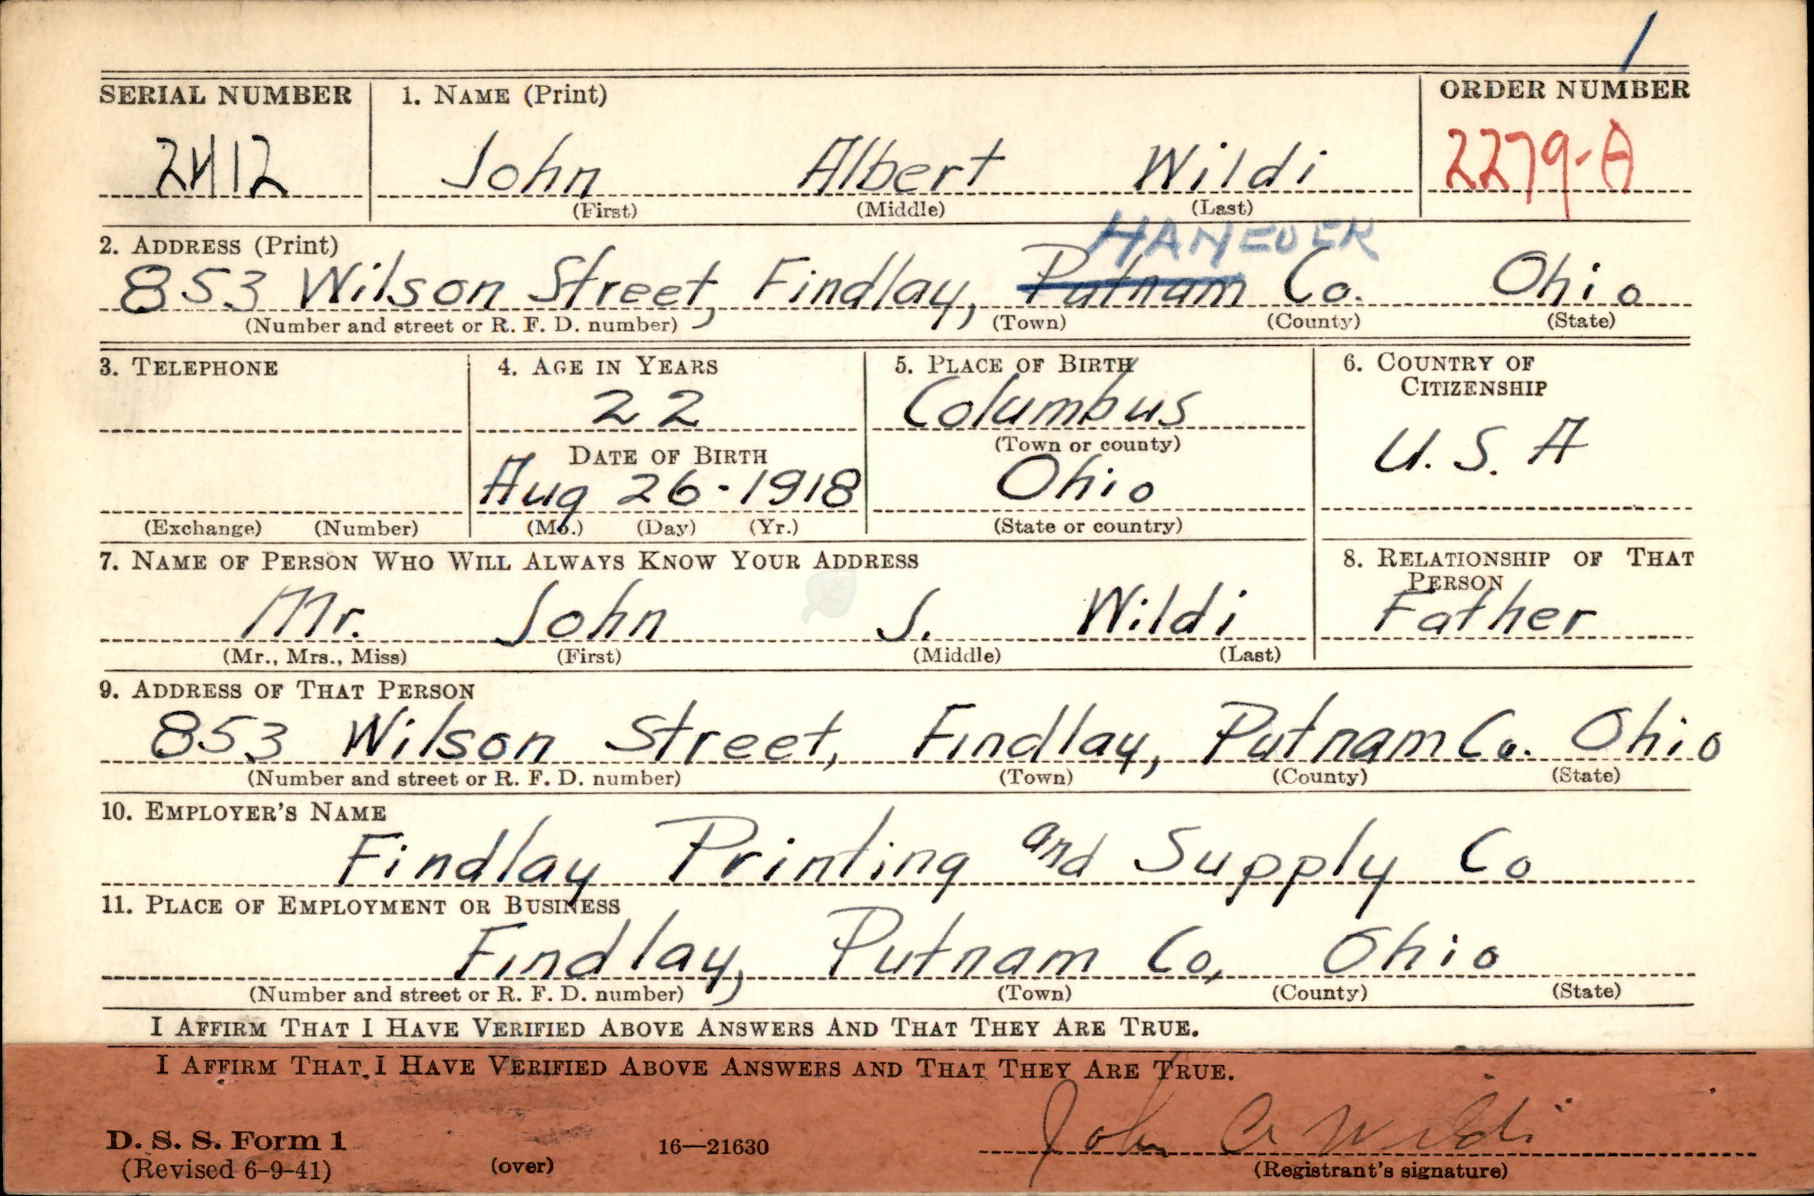 1
SERIAL NUMBER 1. NAME (Print) ORDER NUMBER
2412 John Albert Wildi 2279-A
(First) (Middle) (Last)
2. ADDRESS (Print) HANCOCK
853 Wilson Street, Findlay, Putnam Co. Ohio
(Number and street or R. F. D. number) (Town) (County) (State)
3. TELEPHONE 4. AGE IN YEARS 5. PLACE OF BIRTH 6. COUNTRY OF
CITIZENSHIP
22 Columbus
(Town or county)
DATE OF BIRTH U. S. A
Aug 26-1918 Ohio
(Exchange) (Number) (Mo.) (Day) (Yr.) (State or country)
7. NAME OF PERSON WHO WILL ALWAYS KNOW YOUR ADDRESS 8. RELATIONSHIP OF THAT
PERSON
Mr. John J. Wildi Father
(Mr., Mrs., Miss) (First) (Middle) (Last)
9. ADDRESS OF THAT PERSON
853 Wilson Street, Findlay, Putnam Co. Ohio
(Number and street or R. F. D. number) (Town) (County) (State)
10. EMPLOYER'S NAME
Findlay Printing and Supply Co
11. PLACE OF EMPLOYMENT OR BUSINESS
Findlay, Putnam Co, Ohio
(Number and street or R. F. D. number) (Town) (County) (State)
I AFFIRM THAT I HAVE VERIFIED ABOVE ANSWERS AND THAT THEY ARE TRUE.
I AFFIRM THAT I HAVE VERIFIED ABOVE ANSWERS AND THAT THEY ARE TRUE.
John A Wildi
D. S. S. Form 1 16—21630
(Revised 6-9-41) (over) (Registrant's signature)